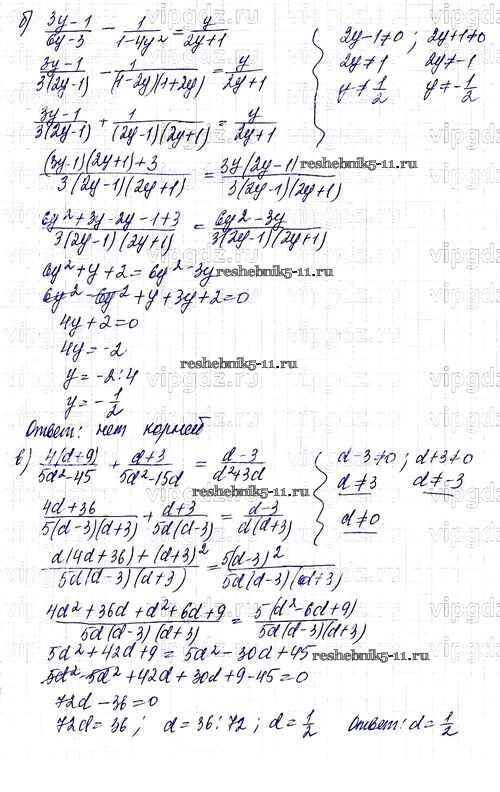 б) (3y-1)/(6y-3) - 1/(1-4y²) = y/(2y+1) { 2y-1≠0; 2y+1≠0
(3y-1)/(3(2y-1)) - 1/((1-2y)(1+2y)) = y/(2y+1) 2y≠1 2y≠-1
(3y-1)/(3(2y-1)) + 1/((2y-1)(2y+1)) = y/(2y+1) y≠1/2 y≠-1/2
((3y-1)(2y+1)+3)/(3(2y-1)(2y+1)) = 3y(2y-1)/(3(2y-1)(2y+1)) reshebnik5-11.ru
(6y²+3y-2y-1+3)/(3(2y-1)(2y+1)) = (6y²-3y)/(3(2y-1)(2y+1))
6y²+y+2=6y²-3y reshebnik5-11.ru
6y²-6y²+y+3y+2=0
4y+2=0
4y=-2 reshebnik5-11.ru
y=-2:4
y=-1/2
Ответ: нет корней
в) 4(d+9)/(5d²-45) + (d+3)/(5d²-15d) = (d-3)/(d²+3d) { d-3≠0; d+3≠0
d≠3 d≠-3
(4d+36)/(5(d-3)(d+3)) + (d+3)/(5d(d-3)) = (d-3)/(d(d+3)) d≠0
(d(4d+36)+(d+3)²)/(5d(d-3)(d+3)) = 5(d-3)²/(5d(d-3)(d+3))
(4d²+36d+d²+6d+9)/(5d(d-3)(d+3)) = 5(d²-6d+9)/(5d(d-3)(d+3))
5d²+42d+9=5d²-30d+45 reshebnik5-11.ru
5d²-5d²+42d+30d+9-45=0
72d-36=0
72d=36; d=36:72; d=1/2 Ответ: d=1/2